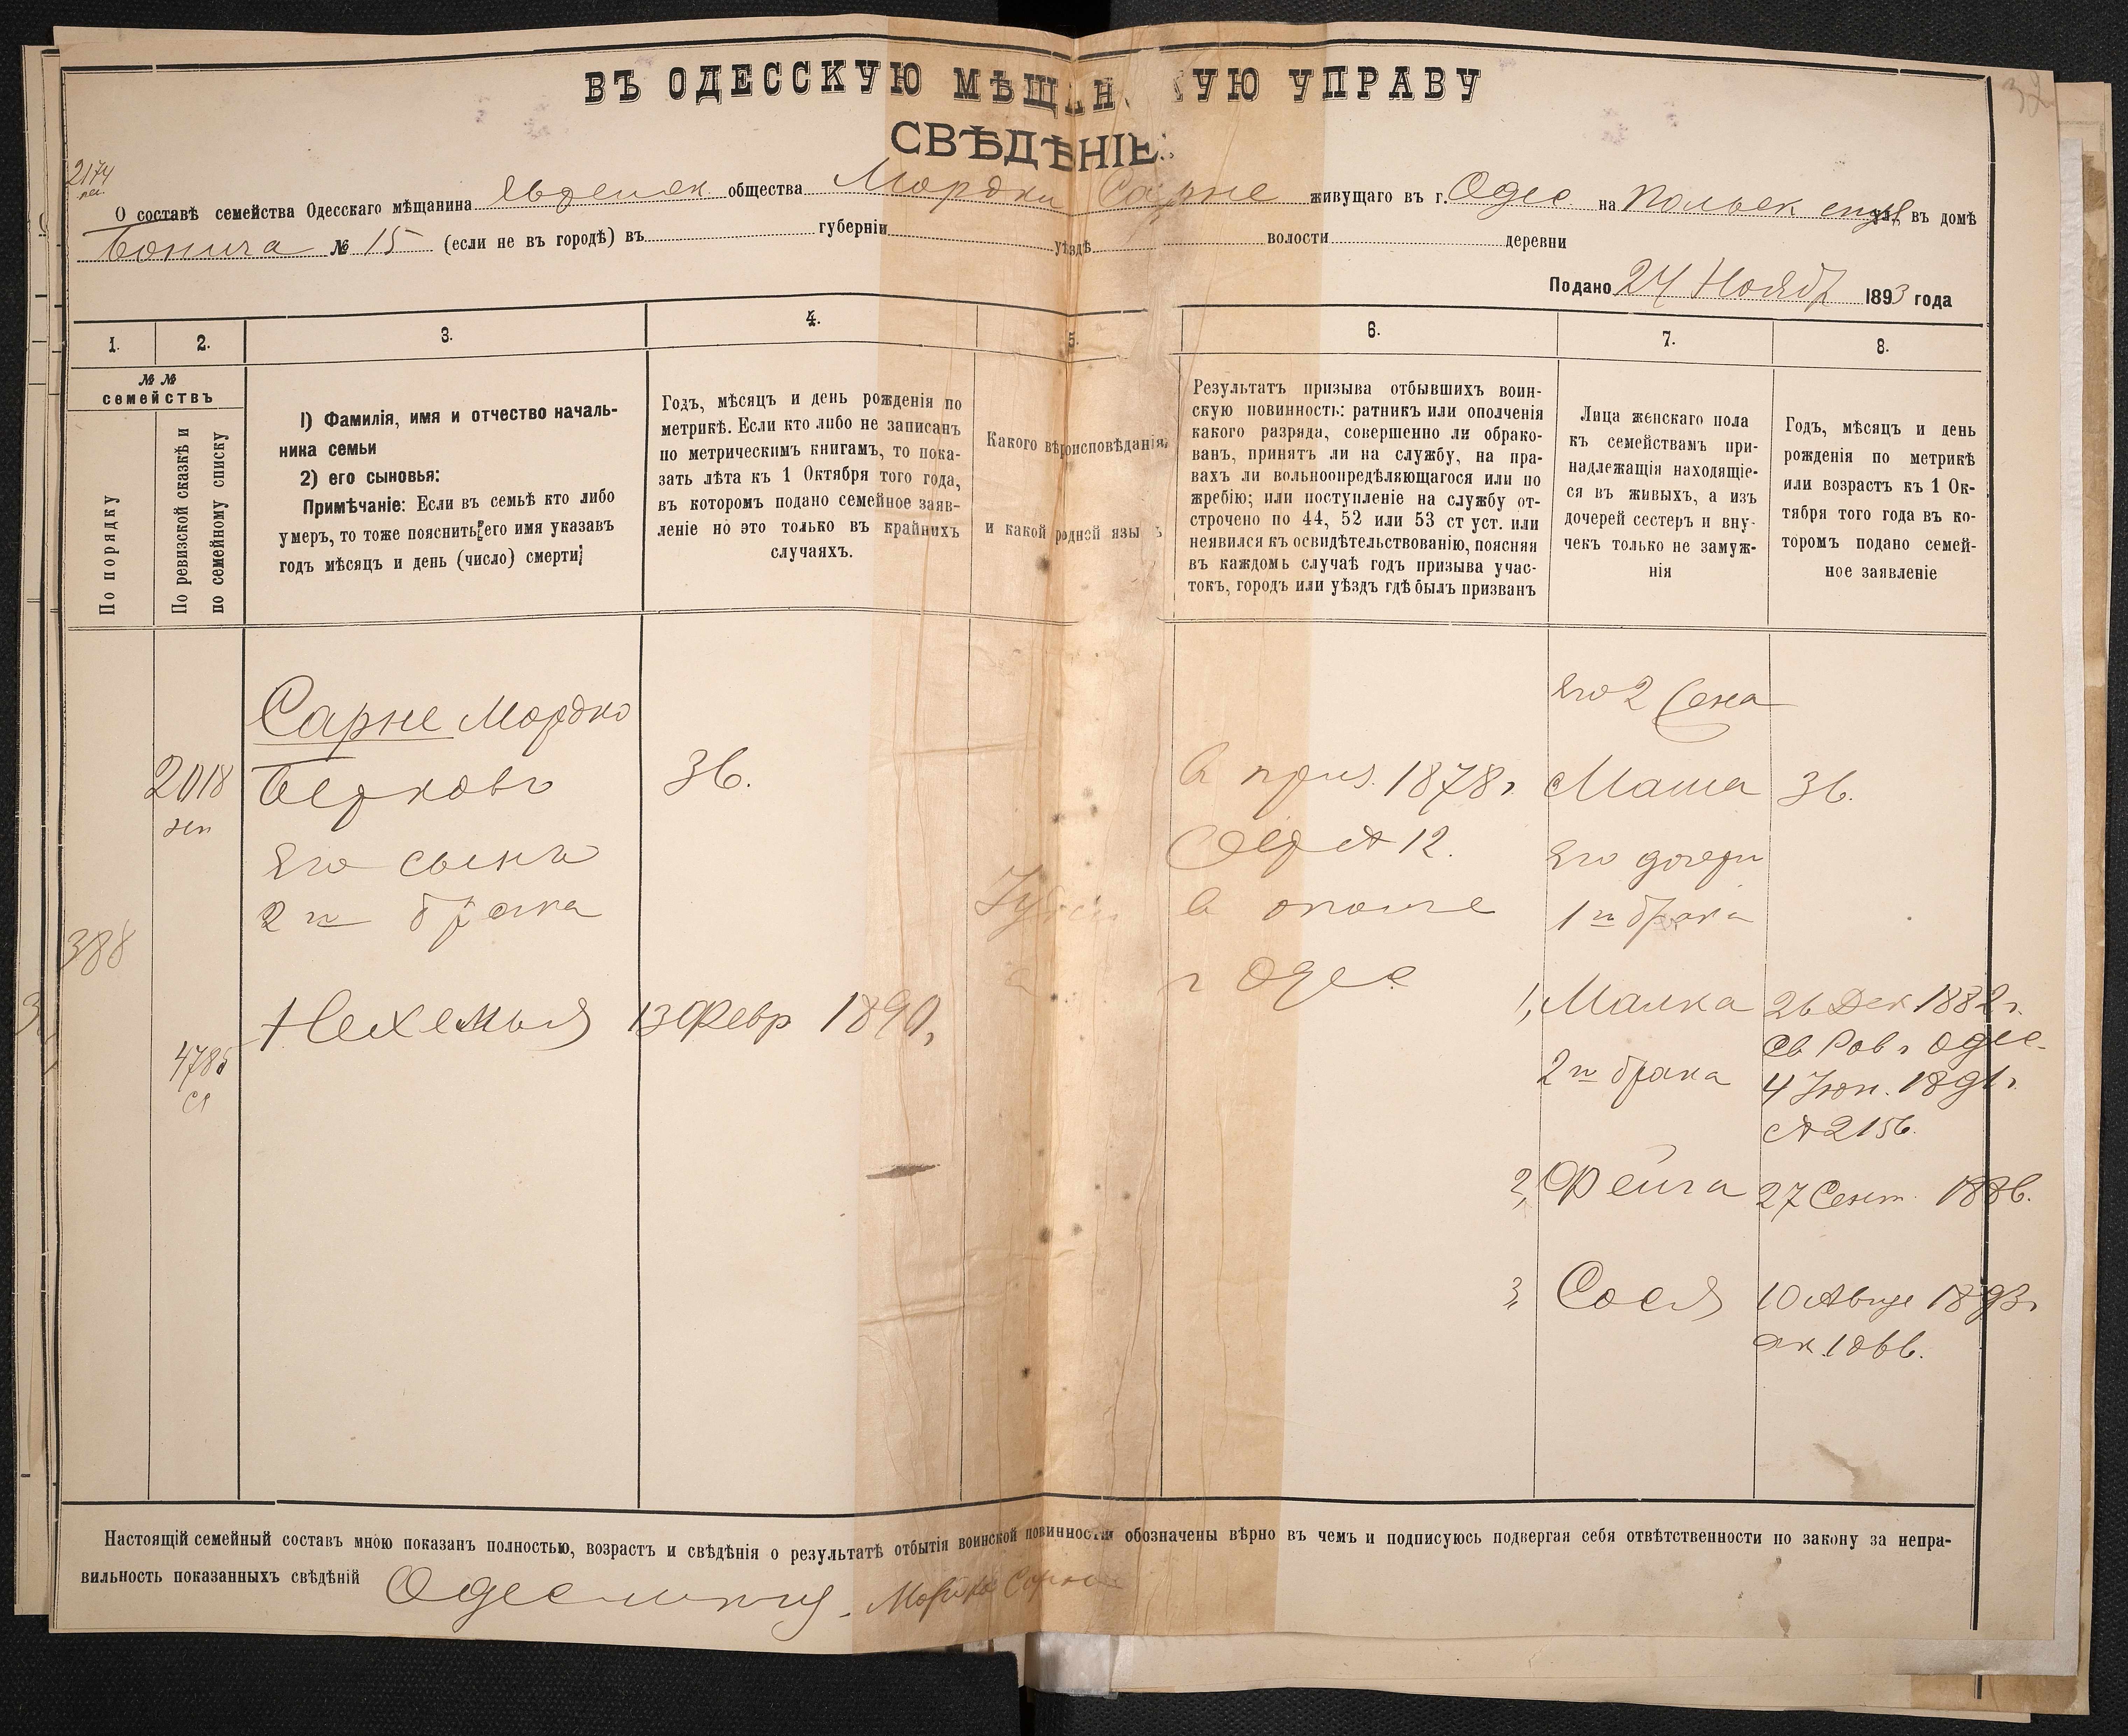 ВЪ ОДЕССКУЮ МѢЩАНСКУЮ УПРАВУ
СВѢДѢНІЕ:
2174
О составѣ семейства Одесскаго мѣщанина общества Мордки Сарне живущаго въ г. Одес. на Польск ул. въ домѣ
№ 15 (если не въ городѣ) въ губерніи уѣздѣ волости деревни
Подано 24 Нояб 1893 года
1. 2. 3. 4. 5. 6. 7. 8.
№ № семействъ
По порядку
По ревизской сказкѣ и по семейному списку
1) Фамилія, имя и отчество началь-
ника семьи
2) его сыновья:
Примѣчаніе: Если въ семьѣ кто либо
умеръ, то тоже пояснить его имя указавъ
годъ мѣсяцъ и день (число) смерти;
Годъ, мѣсяцъ и день рожденія по
метрикѣ. Если кто либо не записанъ
по метрическимъ книгамъ, то пока-
зать лѣта къ 1 Октября того года,
въ котором подано семейное заяв-
леніе но это только въ крайнихъ
случаяхъ.
Какого вѣроисповѣданія,
и какой родной язы
Результатъ призыва отбывшихъ воин-
скую повинность: ратникъ или ополченія
какого разряда, совершенно ли обрако-
ванъ, принятъ ли на службу, на пра-
вахъ ли вольноопредѣляющагося или по
жребію; или поступленіе на службу от-
строчено по 44, 52 или 53 ст уст. или
неявился къ освидѣтельствованію, поясняя
въ каждомъ случаѣ годъ призыва учас-
токъ, городъ или уѣздъ гдѣ былъ призванъ
Лица женскаго пола
къ семействамъ при-
надлежащія находящіе-
ся въ живыхъ, а изъ
дочерей сестеръ и вну-
чекъ только не замуж-
нія
Годъ, мѣсяцъ и день
рожденія по метрикѣ
или возрастъ къ 1 Ок-
тября того года въ ко-
торомъ подано семей-
ное заявленіе
Сарне Мордко
Его 2 жена
2018 Берковъ 36. в приз. 1878 г. Маша 36.
№ 12.
Его сынъ Его дочери
2 го брака в ополче 1 го брака
388
г Одес
Нехемья 13 Февр 1890, 1, Малка 26 Дек 1882 г.
4785 Св Рав г Одес.
2 го брака 4 Іюн. 1891 г.
№ 2156.
2, Фейга 27 Сент. 1886.
3, Сося 10 Авгус 1893 г
Настоящій семейный составъ мною показанъ полностью, возрастъ и свѣдѣнія о результатѣ отбытія воинской повинности обозначены вѣрно въ чемъ и подписуюсь подвергая себя отвѣтственности по закону за непра-
вильность показанныхъ свѣдѣній